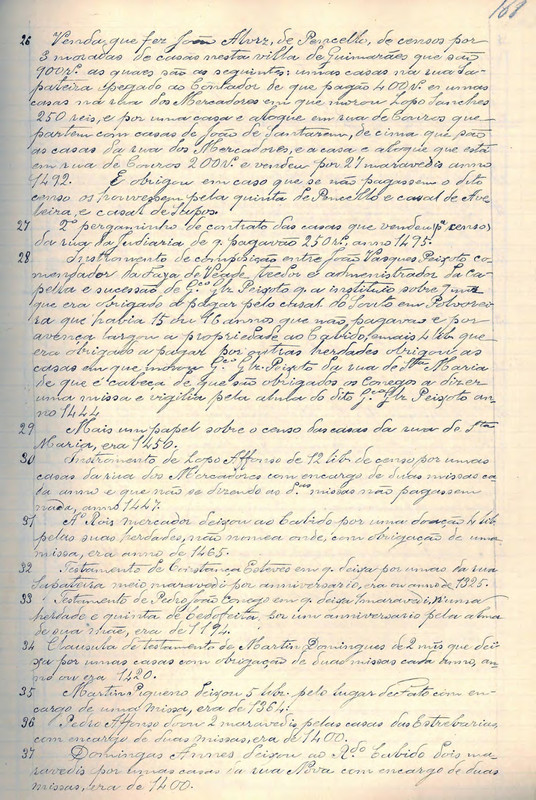 161
26 Venda que fez João Alvrz, de Pencello, de censos por
3 moradas de casas nesta villa de Guimarães que são
900 rs. as quaes são as seguintes: umas casas na rua Sa-
pateira apegado ao Contador de que pagão 400 rs. e umas
casas na rua dos Mercadores em que morou Lopo Sanches
250 reis, e por uma casa e aloque em rua de Couros que
partem com casas de João de Santarem, de cima que são
as casas da rua dos Mercadores, e a casa e aloque que está
em rua de Couros 200 rs. e vendeu por 27 maravedis anno
1492. E obrigou em caso que se não pagassem o dito
censo os houvessem pela quinta de Pencello e casal de Ave-
laira, e casal de
27 2º pergaminho do contrato das casas que vendeu pª censo,
da rua da Judiaria de q. pagavão 250 rs. anno 1495.
28 Instromento de composição entre João Vasques Peixoto co-
mendador da e administrador da Ca-
pella e sucessão de Gco. Glz Peixoto q. a instituio sobre 7
que era obrigado a pagar pelo casal do Souto em Polvorei-
ra que habia 15 ou 16 annos que não pagava e por
avença largou a propriedade ao Cabido, e mais 4 lib. que
era obrigado a pagar por outras herdades obrigou as
casas em que morou Gco. Glz Peixoto da rua de Stª Maria
de que é cabeça de que são obrigados os Conegos a dizer
uma missa e vigilia pela alma do dito Gco. Glz Peixoto an-
no 1444
29 Mais um papel sobre o censo das casas da rua de Stª
Maria, era 1450.
30 Instromento de Lopo Affonso de 12 lib. de censo por umas
casas da rua dos Mercadores com encargo de duas missas ca-
da anno e que não se dizendo as d.as missas não pagassem
nada, anno 1447.
31 Aº Rois mercador deixou ao Cabido por uma doação 4 lib.
pelas suas herdades, não nomea onde, com obrigação de uma
missa, era anno de 1465.
32 Testamento de Constança Esteves em q. deixa por umas da rua
Sapateira meio maravedi por anniversario, era ou anno de 1325.
33 Testamento de Pedro João Conego em q. deixa 1 maravedi, n'uma
herdade e quinta de Cedofeita por um anniversario pela alma
de sua mãe, era de 1194.
34 Clausula do testamento de Martim Domingues de 2 mrs que dei-
xa por umas casas com obrigação de duas missas cada anno, an-
no ou era 1420.
35 Martim Piqueno deixou 5 libr. pelo lugar de Fato com en-
cargo de uma missa, era de 1364.
36 Pedro Affonso doou 2 maravedis pelas casas das Estrebarias,
com encargo de duas missas, era de 1400.
37 Domingas Annes deixou ao R.do Cabido dois ma-
ravedis por umas casas da rua Nova com encargo de duas
missas, era de 1400.